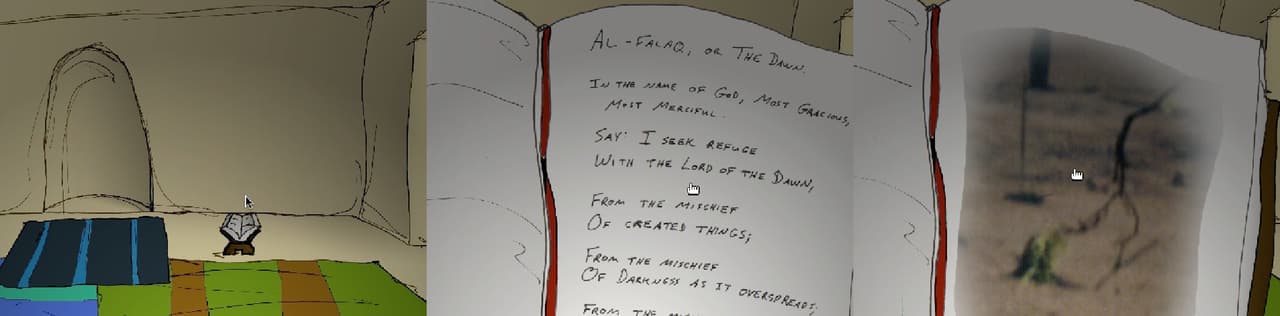 AL-FALAQ, OR THE DAWN.
IN THE NAME OF GOD, MOST GRACIOUS,
MOST MERCIFUL.
SAY: I SEEK REFUGE
WITH THE LORD OF THE DAWN,
FROM THE MISCHIEF
OF CREATED THINGS;
FROM THE MISCHIEF
OF DARKNESS AS IT OVERSPREADS;
FROM THE